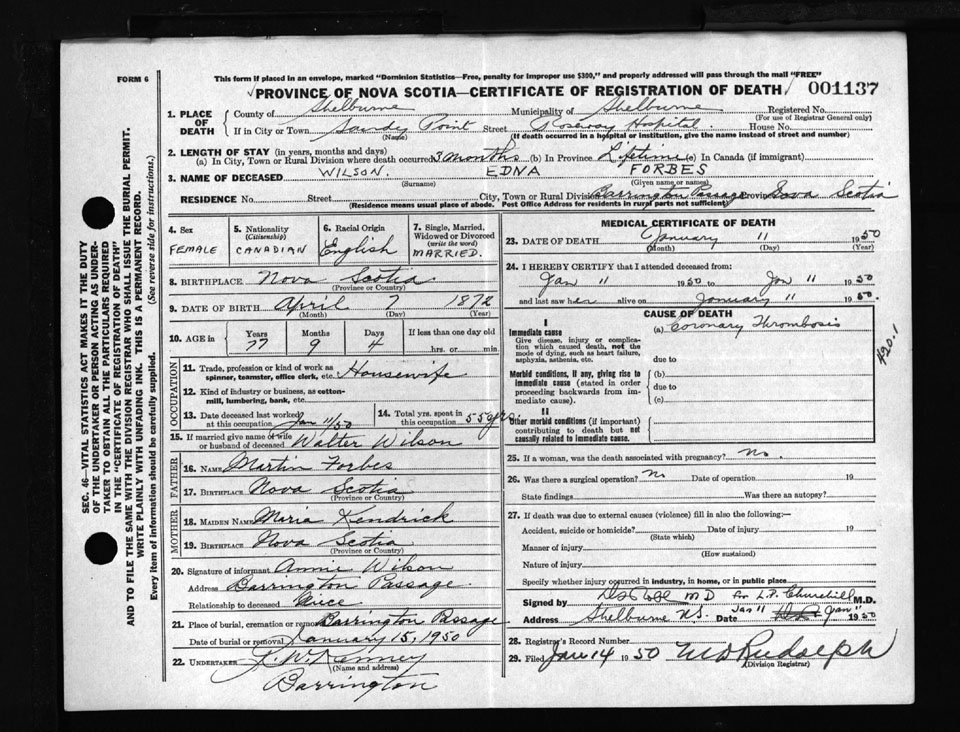 FORM 6
This form if placed in an envelope, marked "Dominion Statistics—Free, penalty for improper use $300," and properly addressed will pass through the mail "FREE"
PROVINCE OF NOVA SCOTIA—CERTIFICATE OF REGISTRATION OF DEATH 001137
1. PLACE OF DEATH
County of Shelburne Municipality of Shelburne Registered No.
(For use of Registrar General only)
If in City or Town Sandy Point Street Roseway Hospital House No.
(Name) (If death occurred in a hospital or institution, give the name instead of street and number)
2. LENGTH OF STAY (in years, months and days)
(a) In City, Town or Rural Division where death occurred 3 months (b) In Province Lifetime (c) In Canada (if immigrant)
3. NAME OF DECEASED WILSON. EDNA FORBES
(Surname) (Given name or names)
RESIDENCE No. Street City, Town or Rural Division Barrington Passage Province Nova Scotia
(Residence means usual place of abode. Post Office Address for residents in rural parts not sufficient)
4. Sex
FEMALE
5. Nationality
(Citizenship)
CANADIAN
6. Racial Origin
English
7. Single, Married, Widowed or Divorced
(write the word)
MARRIED.
8. BIRTHPLACE Nova Scotia
(Province or Country)
9. DATE OF BIRTH April 7 1872
(Month) (Day) (Year)
10. AGE in Years Months Days If less than one day old
77 9 4 hrs. or min.
OCCUPATION
11. Trade, profession or kind of work as spinner, teamster, office clerk, etc. Housewife
12. Kind of industry or business, as cotton-mill, lumbering, bank, etc.
13. Date deceased last worked at this occupation Jan 11/50
14. Total yrs. spent in this occupation 55 yrs.
15. If married give name of wife or husband of deceased Walter Wilson
FATHER
16. NAME Martin Forbes
17. BIRTHPLACE Nova Scotia
(Province or Country)
MOTHER
18. MAIDEN NAME Maria Kendrick
19. BIRTHPLACE Nova Scotia
(Province or Country)
20. Signature of informant Annie Wilson
Address Barrington Passage.
Relationship to deceased Niece
21. Place of burial, cremation or removal Barrington Passage
Date of burial or removal January 15, 1950
22. UNDERTAKER L. W. Kenney
(Name and address)
Barrington
MEDICAL CERTIFICATE OF DEATH
23. DATE OF DEATH January 11 1950
(Month) (Day) (Year)
24. I HEREBY CERTIFY that I attended deceased from:
Jan 11 1950 to Jan 11 1950
and last saw her alive on January 11 1950.
CAUSE OF DEATH
I
Immediate cause
Give disease, injury or complication which caused death, not the mode of dying, such as heart failure, asphyxia, asthenia, etc.
(a) Coronary Thrombosis
420.1
due to
Morbid conditions, if any, giving rise to immediate cause (stated in order proceeding backwards from immediate cause).
(b)
due to
(c)
II
Other morbid conditions (if important) contributing to death but not causally related to immediate cause.
25. If a woman, was the death associated with pregnancy? No.
26. Was there a surgical operation? No Date of operation 19
State findings Was there an autopsy?
27. If death was due to external causes (violence) fill in also the following:—
Accident, suicide or homicide? Date of injury 19
(State which)
Manner of injury
(How sustained)
Nature of injury
Specify whether injury occurred in industry, in home, or in public place
Signed by MD for L.P. Churchill M.D.
Address Shelburne N.S. Date Jan 11 Jan 11 1950
28. Registrar's Record Number
29. Filed Jan 14 1950 M D Rudolph
(Division Registrar)
SEC. 46—VITAL STATISTICS ACT MAKES IT THE DUTY
OF THE UNDERTAKER OR PERSON ACTING AS UNDER-
TAKER TO OBTAIN ALL THE PARTICULARS REQUIRED
IN THE "CERTIFICATE OF REGISTRATION OF DEATH"
AND TO FILE THE SAME WITH THE DIVISION REGISTRAR WHO SHALL ISSUE THE BURIAL PERMIT.
WRITE PLAINLY WITH UNFADING INK. THIS IS A PERMANENT RECORD.
Every item of information should be carefully supplied. (See reverse side for instructions.)